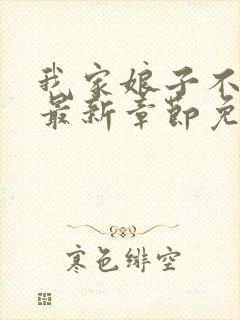 我家娘子不
最新章節免
寒色緋空